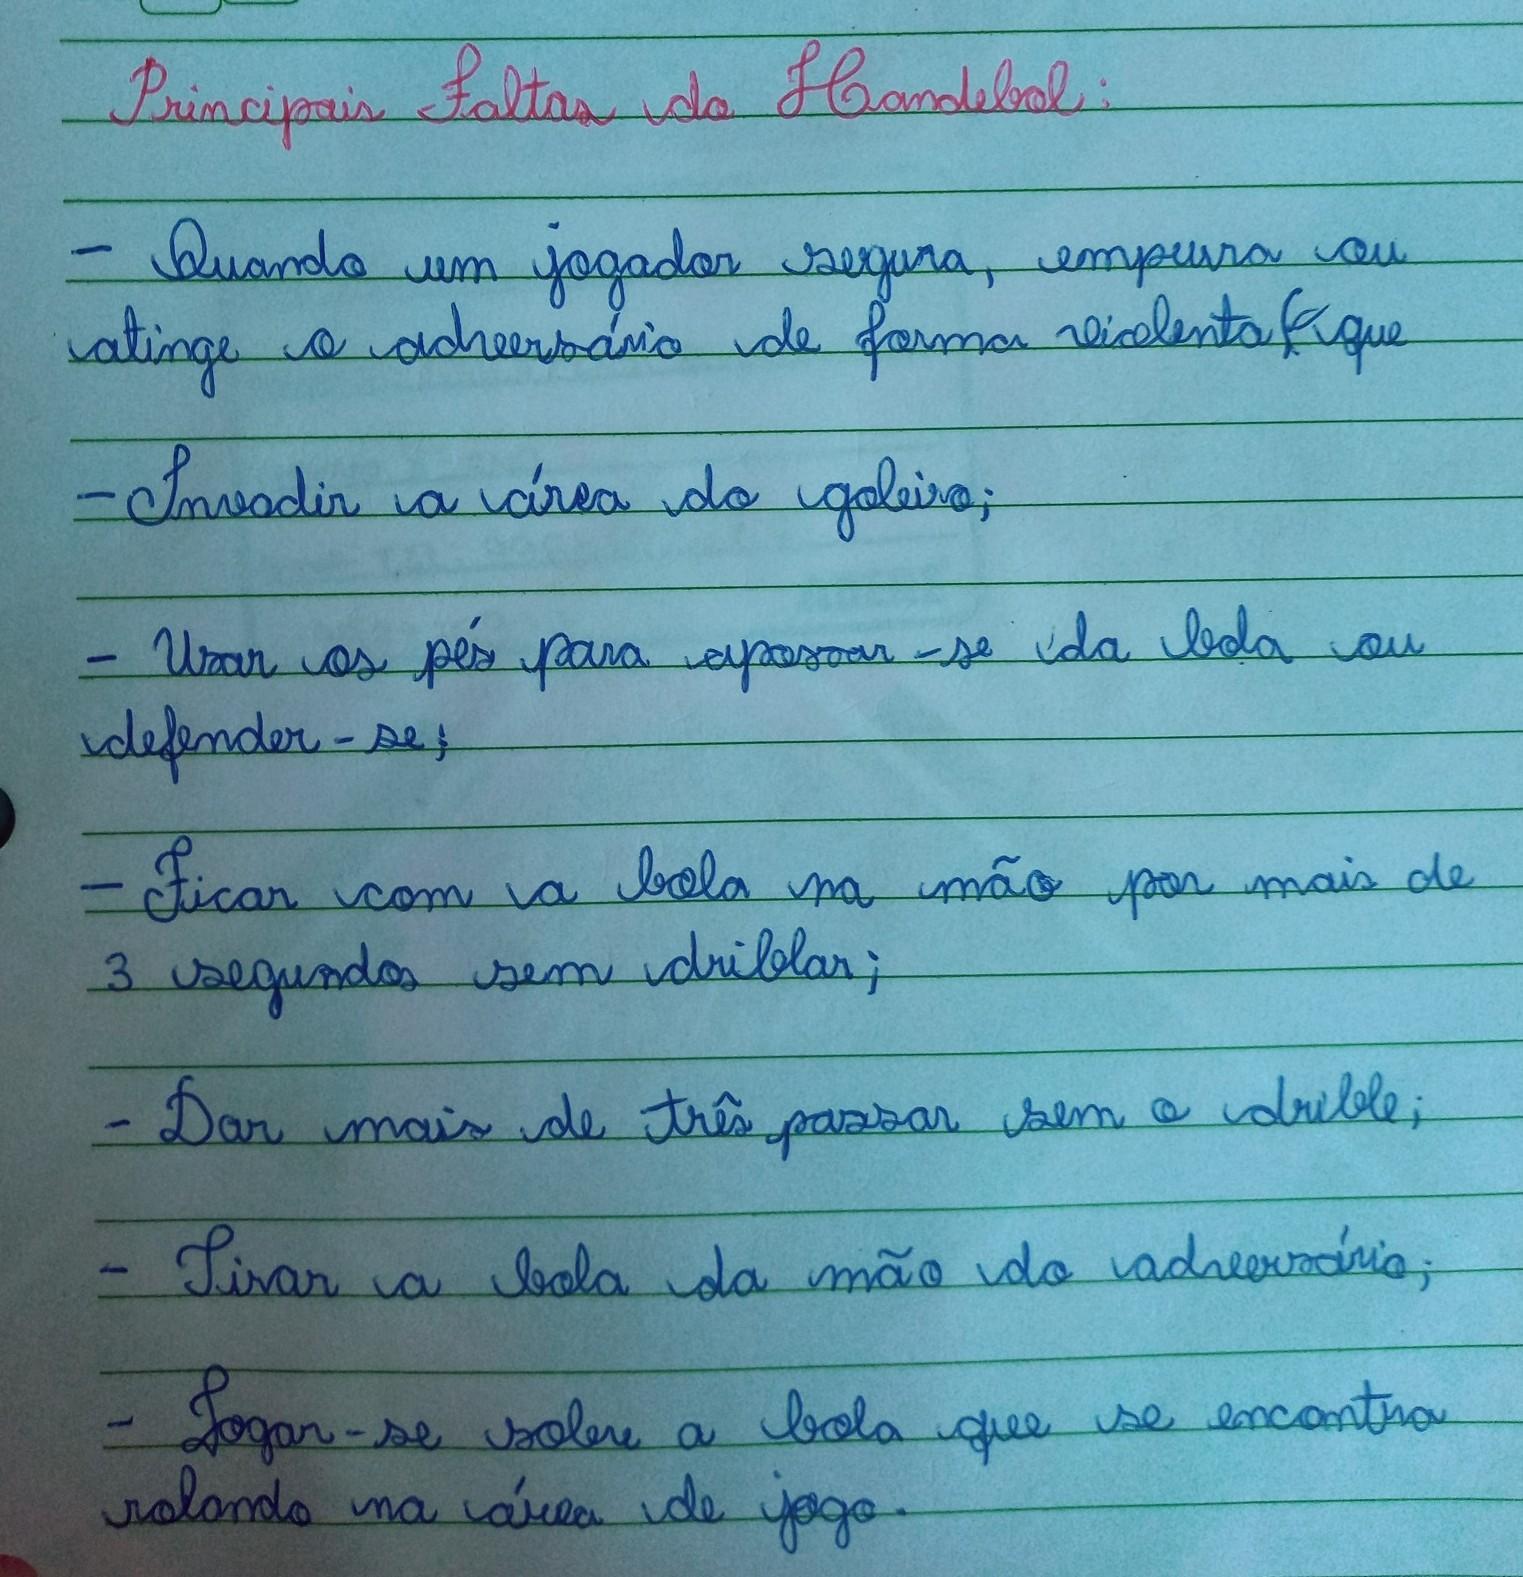 Principais Faltas do Handebol:
- Quando um jogador segura, empurra ou
atinge o adversário de forma violenta que
- Invadir a área do goleiro;
- Usar os pés para apossar-se da bola ou
defender-se;
- Ficar com a bola na mão por mais de
3 segundos sem driblar;
- Dar mais de três passar sem o drible;
- Tirar a bola da mão do adversário;
- Jogar-se sobre a bola que se encontra
rolando na área de jogo.